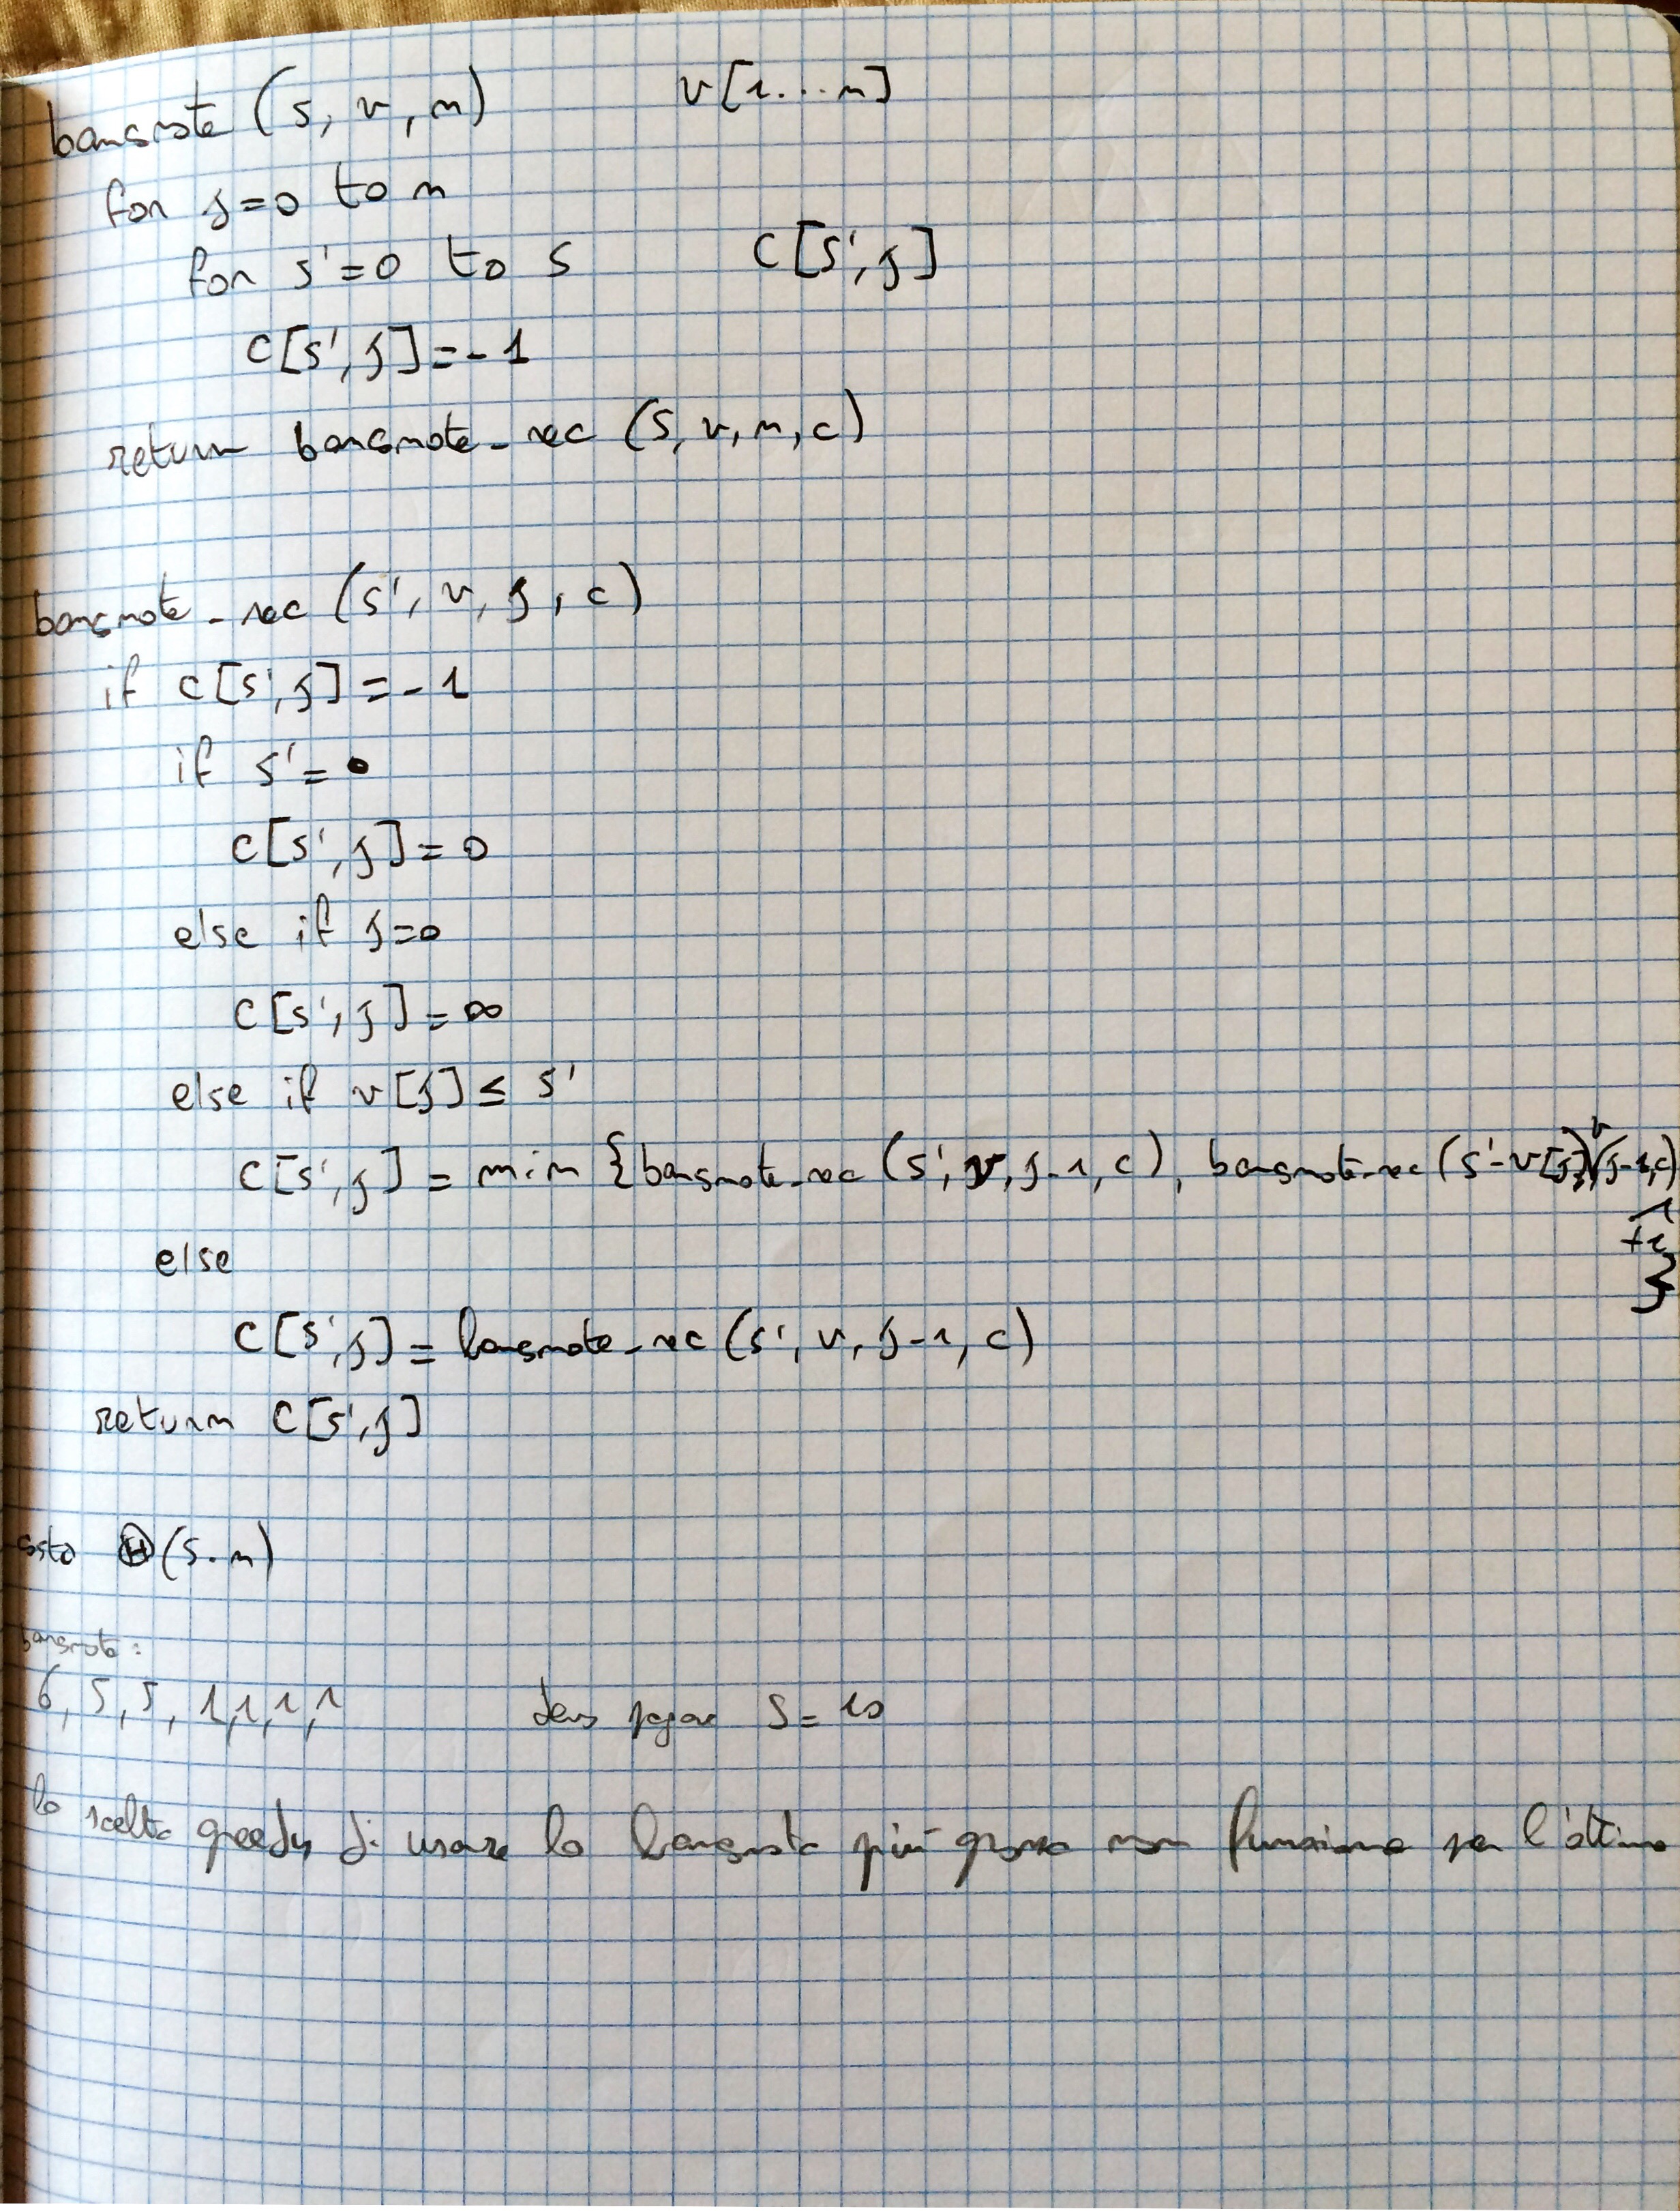 bancnote (s, v, n) v[1...n]
for j=0 to n
for s'=0 to s C[s',j]
C[s',j]=-1
return bancnote_rec (s, v, n, c)
bancnote_rec (s', v, j, c)
if c[s',j]=-1
if s'=0
c[s',j]=0
else if j=0
c[s',j]=∞
else if v[j]≤ s'
c[s',j] = min {bancnote_rec (s', v, j-1, c), bancnote_rec (s'-v[j], v, j-1, c)
+1
}
else
c[s',j]= bancnote_rec (s', v, j-1, c)
return c[s',j]
osto Θ(s.n)
bancnote:
6, 5, 5, 1,1,1,1 devo pagare S=10
la scelta greedy di usare la bancnota più grossa non funziona per l'ottimo